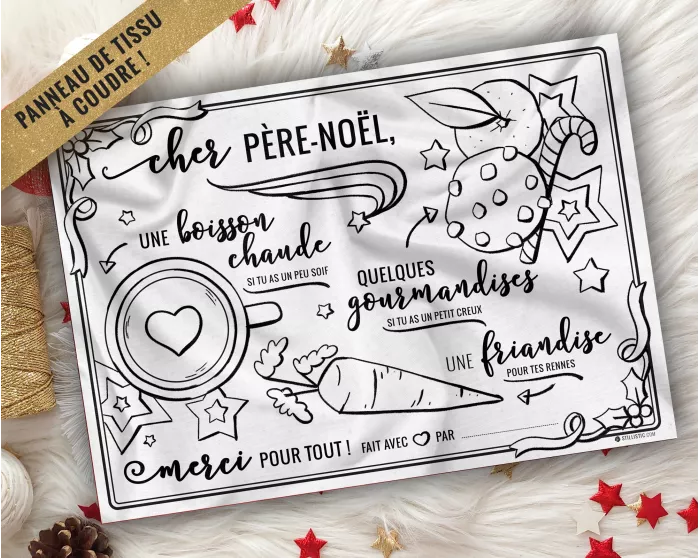 PANNEAU DE TISSU
À COUDRE !
cher PÈRE-NOËL,
UNE boisson
chaude
SI TU AS UN PEU SOIF
QUELQUES
gourmandises
SI TU AS UN PETIT CREUX
UNE friandise
POUR TES RENNES
merci POUR TOUT ! FAIT AVEC PAR
STILLISTIC.COM